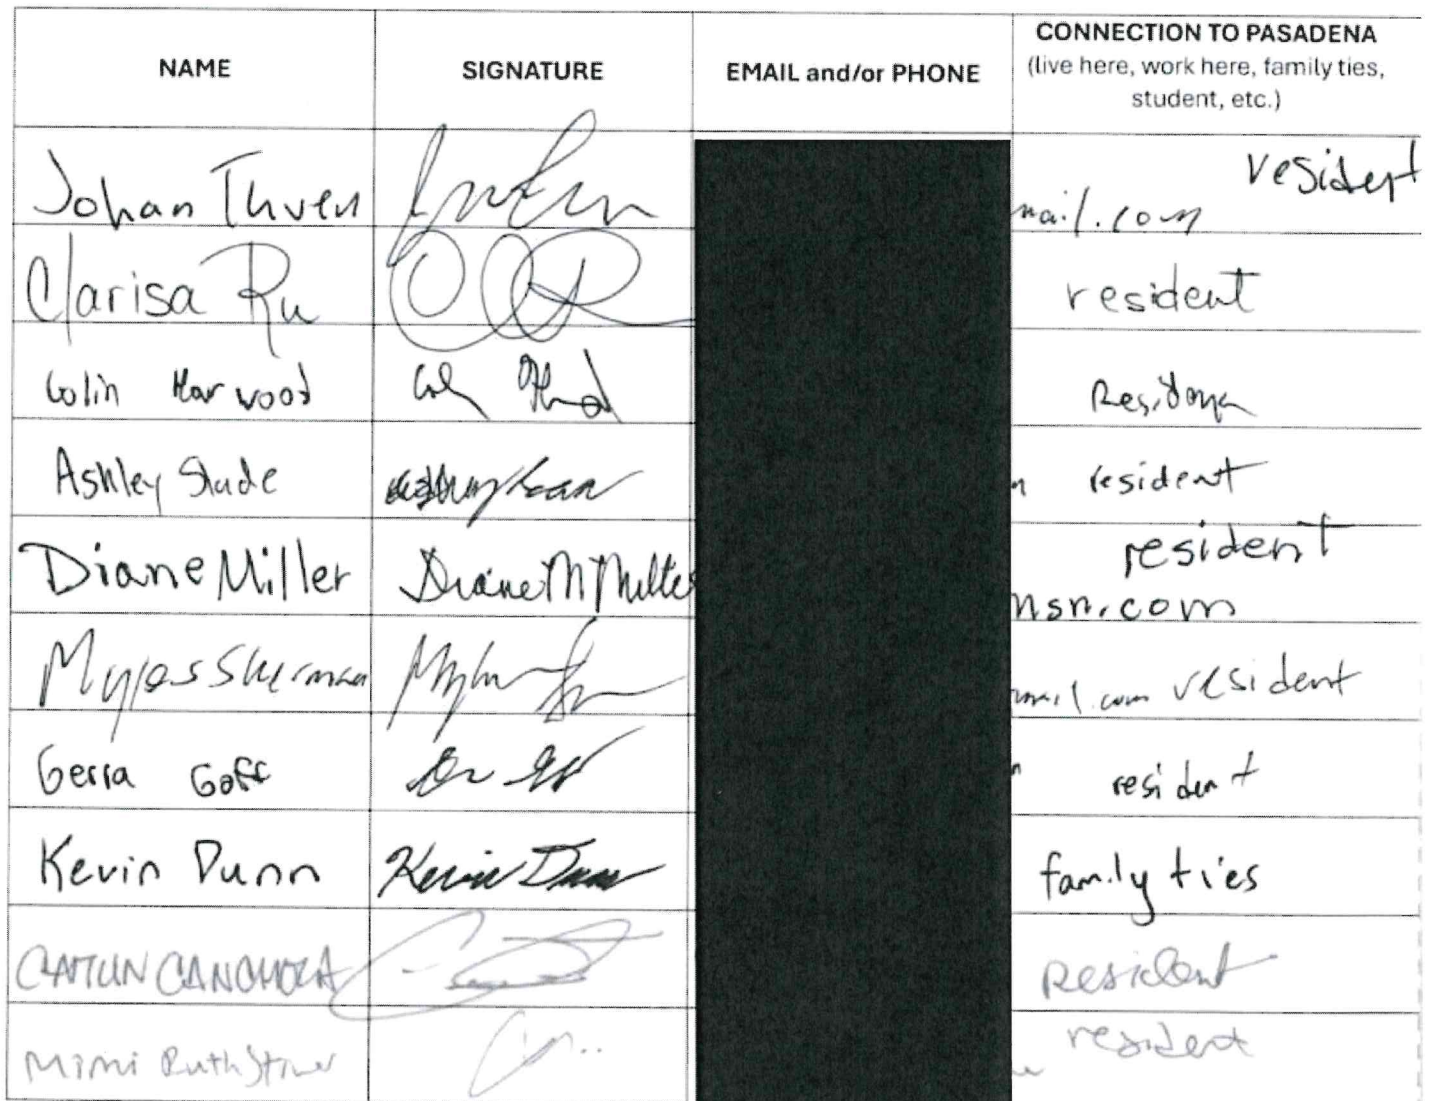 NAME SIGNATURE EMAIL and/or PHONE CONNECTION TO PASADENA
(live here, work here, family ties,
student, etc.)
Johan Thven resident
mail.com
Clarisa Ru resident
Colin Harwood Resident
Ashley Slade resident
Diane Miller Diane M Miller resident
msn.com
Myles Sherman mail.com resident
Gerra Goff resident
Kevin Dunn Kevin Dunn family ties
CAITLIN CANCHOLA resident
Mimi Ruth resident